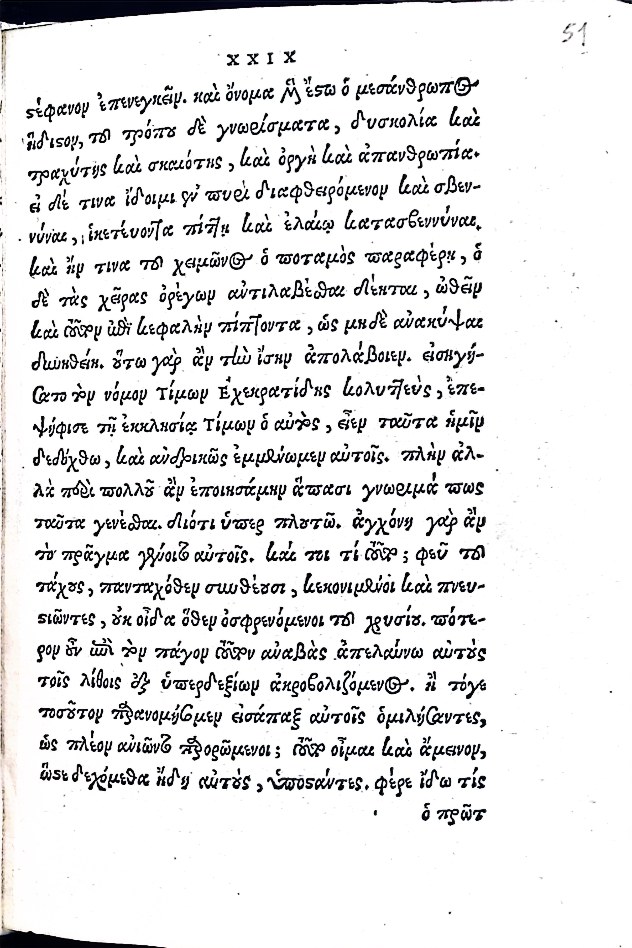 51
XXIX
στέφανον ἐπενεγκεῖν. καὶ ὄνομα μὲν ἔστω ὁ μισάνθρωπος
ἥδιστον, τοῦ τρόπου δὲ γνωρίσματα, δυσκολία καὶ
τραχύτης καὶ σκαιότης, καὶ ὀργὴ καὶ ἀπανθρωπία.
εἰ δέ τινα ἴδοιμι ἐν πυρὶ διαφθειρόμενον καὶ σβεν-
νύναι, ἱκετεύοντα πίττῃ καὶ ἐλαίῳ κατασβεννύναι.
καὶ ἤν τινα τοῦ χειμῶνος ὁ ποταμὸς παραφέρῃ, ὁ
δὲ τὰς χεῖρας ὀρέγων ἀντιλαβέσθαι δέηται, ὠθεῖν
καὶ τοῦτον ἐπὶ κεφαλὴν πίπτοντα, ὡς μηδὲ ἀνακύψαι
δυνηθείη. οὕτω γὰρ ἂν τὴν ἴσην ἀπολάβοιεν. εἰσηγή-
σατο τὸν νόμον Τίμων Ἐχεκρατίδης κολυττεύς, ἐπε-
ψήφισε τῇ ἐκκλησίᾳ Τίμων ὁ αὐτός, εἶεν ταῦτα ἡμῖν
δεδόχθω, καὶ ἀνδρικῶς ἐμμένωμεν αὐτοῖς. πλὴν ἀλ-
λὰ περὶ πολλοῦ ἂν ἐποιησάμην ἅπασι γνωριμά πως
ταῦτα γενέσθαι. διότι ὑπερπλουτῶ. ἀγχόνη γὰρ ἂν
τὸ πρᾶγμα γένοιτο αὐτοῖς. καί τοι τί τοῦτο; φεῦ τοῦ
τάχους, πανταχόθεν συνθέουσι, κεκονιμένοι καὶ πνευ-
στιῶντες, οὐκ οἶδα ὅθεν ὀσφρενόμενοι τοῦ χρυσίου. πότε-
ρον οὖν ἐπὶ τὸν πάγον τοῦτον ἀναβὰς ἀπελαύνω αὐτοὺς
τοῖς λίθοις ἐξ ὑπερδεξίων ἀκροβολιζόμενος. ἢ τόγε
τοσοῦτον παρανομήσομεν εἰσάπαξ αὐτοῖς ὁμιλήσαντες,
ὡς πλέον ἀνιῶντο παρορώμενοι; τοῦτο οἶμαι καὶ ἄμεινον,
ὥστε δεχόμεθα ἤδη αὐτούς, ὑποστάντες. φέρε ἴδω τίς
ὁ πρῶτ